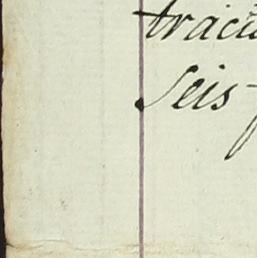 tracu
Seis